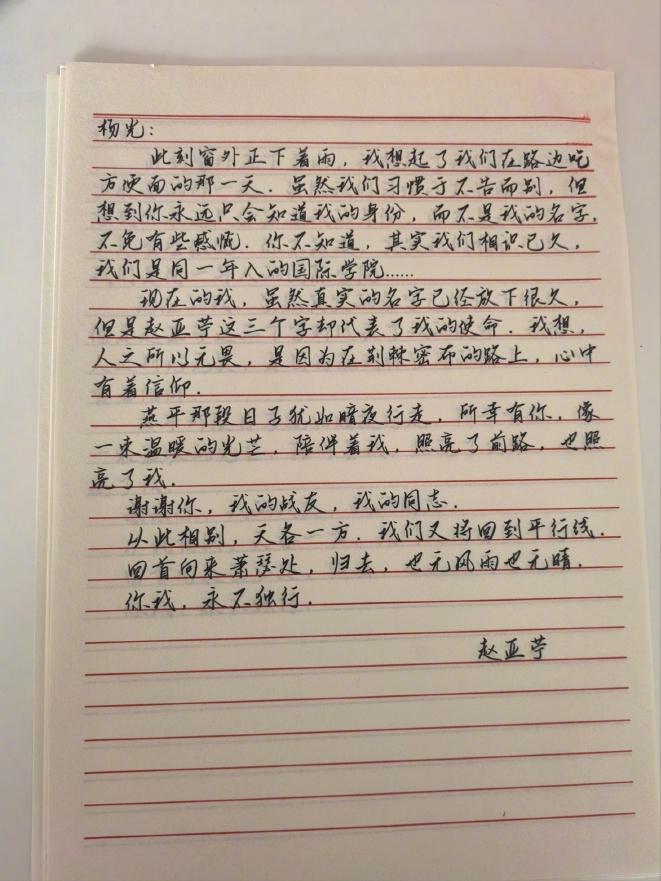 杨光:
此刻窗外正下着雨,我想起了我们在路边吃
方便面的那一天.虽然我们习惯于不告而别,但
想到你永远只会知道我的身份,而不是我的名字,
不免有些感慨.你不知道,其实我们相识已久,
我们是同一年入的国际学院……
现在的我,虽然真实的名字已经放下很久,
但是赵亚苧这三个字却代表了我的使命.我想,
人之所以无畏,是因为在荆棘密布的路上,心中
有着信仰.
燕平那段日子犹如暗夜行走,所幸有你,像
一束温暖的光芒,陪伴着我,照亮了前路,也照
亮了我.
谢谢你,我的战友,我的同志.
从此相别,天各一方.我们又将回到平行线.
回首向来萧瑟处,归去,也无风雨也无晴.
你我,永不独行.
赵亚苧